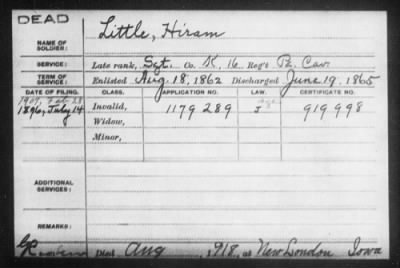 DEAD
NAME OF SOLDIER: Little, Hiram
SERVICE: Late rank, Sgt. Co. K, 16 Reg't Pa. Cav
TERM OF SERVICE: Enlisted Aug. 18, 1862 Discharged June 19, 1865
DATE OF FILING. CLASS. APPLICATION NO. LAW. CERTIFICATE NO.
1907, Feb. 28
1896, July 14 Invalid, 1179289 919998
Widow,
Minor,
ADDITIONAL SERVICES:
REMARKS:
Died Aug , 1918, at New London Iowa